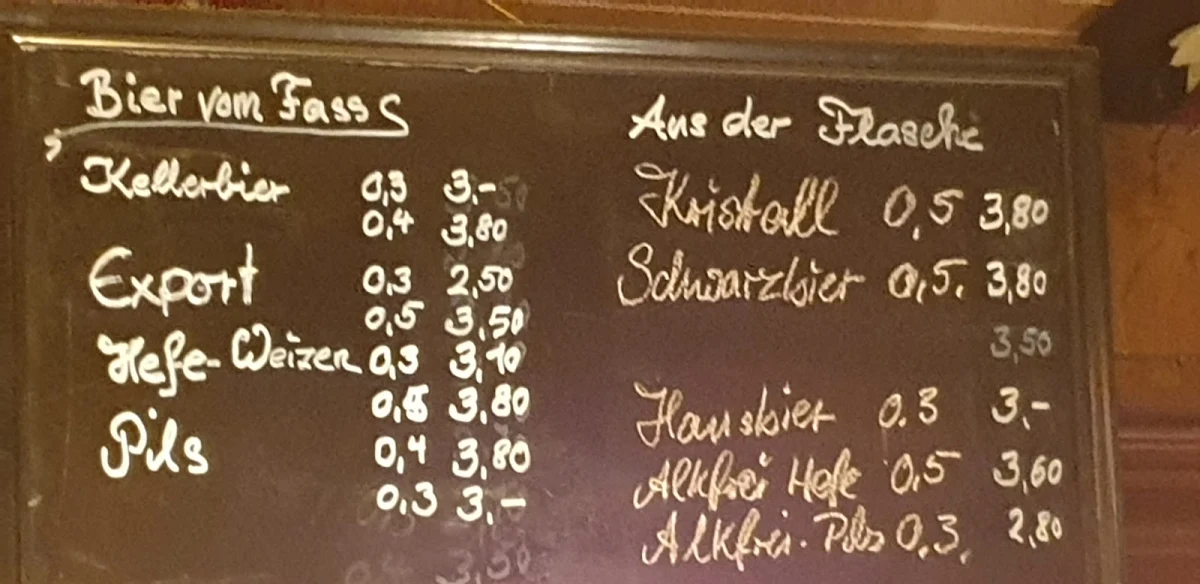 Bier vom Fass
Kellerbier 0,3 3.-
0,4 3,80
Export 0,3 2,50
0,5 3,50
Hefe-Weizen 0,3 3,10
0,5 3,80
Pils 0,4 3,80
0,3 3,-
3,50
Aus der Flasche
Kristall 0,5 3,80
Schwarzbier 0,5. 3,80
3,50
Hausbier 0.3 3.-
Alkfrei Hefe 0,5 3,60
Alkfrei. Pils 0,3. 2,80